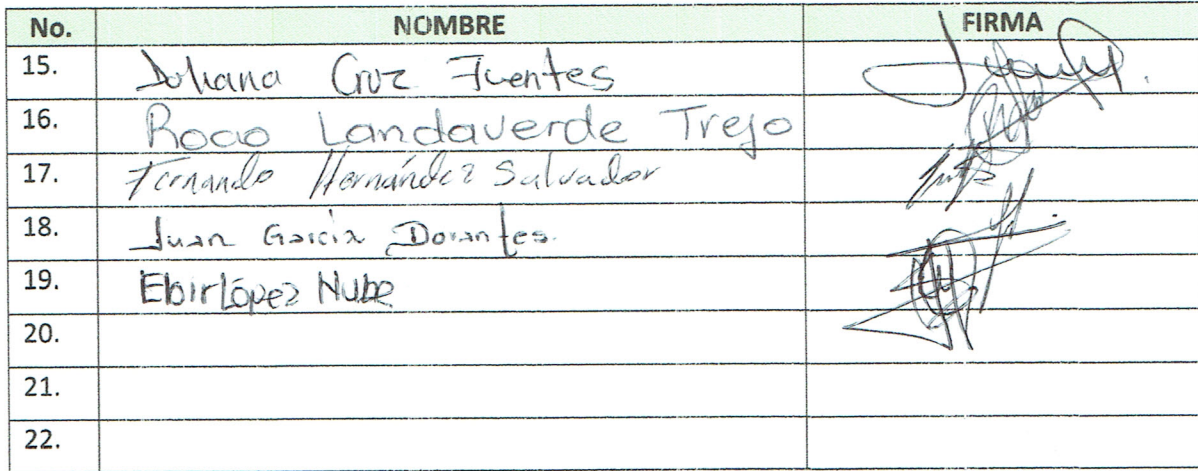 No. NOMBRE FIRMA
15. Juliana Cruz Fuentes
16. Rocio Landaverde Trejo
17. Fernando Hernández Salvador
18. Juan García Dorantes.
19. Ebir López Nube
20.
21.
22.